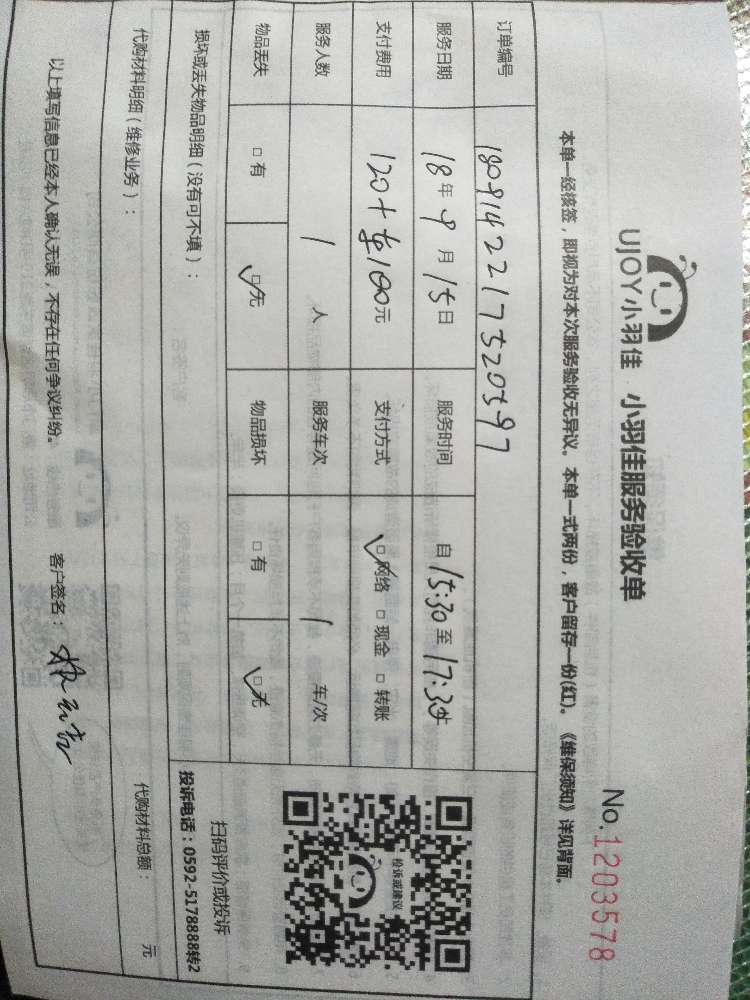 UJOY小羽佳 小羽佳服务验收单
No.1203578
本单一经接签，即视为对本次服务验收无异议。本单一式两份，客户留存一份(红)。《维保须知》详见背面。
订单编号 180914221752059 7
服务日期 18年9月15日 服务时间 自15:30至17:30
支付费用 120+ 100元 支付方式 网络 现金 转账
服务人数 1人 服务车次 1车/次
物品丢失 有 无 物品损坏 有 无
检诉或建议
扫码评价或投诉
投诉电话：0592-5178888转2
损坏或丢失物品明细（没有可不填）：
代购材料明细（维修业务）： 代购材料总额： 元
以上填写信息已经本人确认无误，不存在任何争议纠纷。 客户签名：